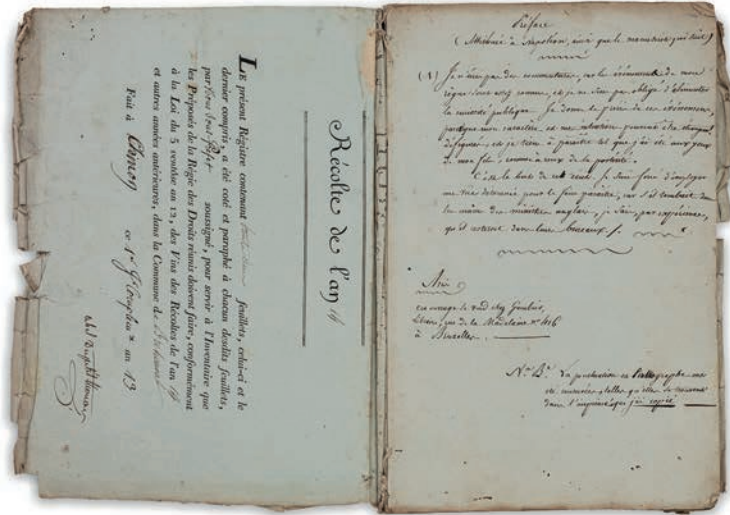 Récolte de l'an 14
LE présent Registre contenant feuillets, celui-ci et le
dernier compris, a été coté et paraphé à chacun desdits feuillets,
par Nous Sous-Préfet soussigné, pour servir à l'Inventaire que
les Préposés de la Régie des Droits réunis doivent faire, conformément
à la Loi du 5 ventôse an 12, des Vins des Récoltes de l'an 14
et autres années antérieures, dans la Commune d
Fait à Chinon ce 1er Jr Complere an 13
Préface
(Attribuée à Napoléon, ainsi que le manuscrit qui suit)
(1) Je n'écris pas des commentaires, car les événements de mon
règne sont assez connus, et je ne suis pas obligé d'alimenter
la curiosité publique. Je donne le précis de ces événements,
parceque mon caractère et mes intentions peuvent être étrangement
défigurés, et je tiens à paraître tel que j'ai été aux yeux
de mon fils, comme à ceux de la postérité.
C'est le but de cet écrit. Je suis forcé d'employer
une voie détournée pour le faire paraître, car s'il tombait dans
les mains des ministres anglais, je sais, par expérience,
qu'il resterait dans leurs bureaux.
Avis
Cet ouvrage se vend chez
libraire, rue de la Madelaine N° 416
à Bruxelles.
Na. Ba. La ponctuation et l'orthographe ont
été conservées telles qu'elles se trouvent
dans l'imprimé que j'ai copié